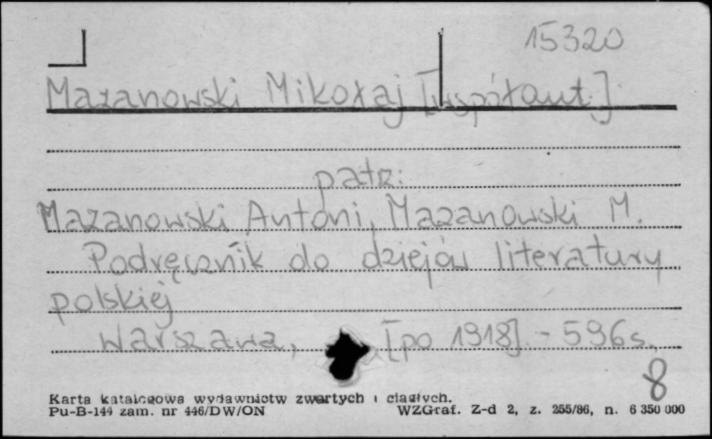 15320
Mazanowski Mikołaj [współaut.]
patrz:
Mazanowski Antoni, Mazanowski M.
Podręcznik do dziejów literatury
polskiej
Warszawa, [po 1918]. - 596 s.
8
Karta katalogowa wydawnictw zwartych i ciągłych.
Pu-B-144 zam. nr 446/DW/ON WZGraf. Z-d 2, z. 255/86, n. 6 350 000